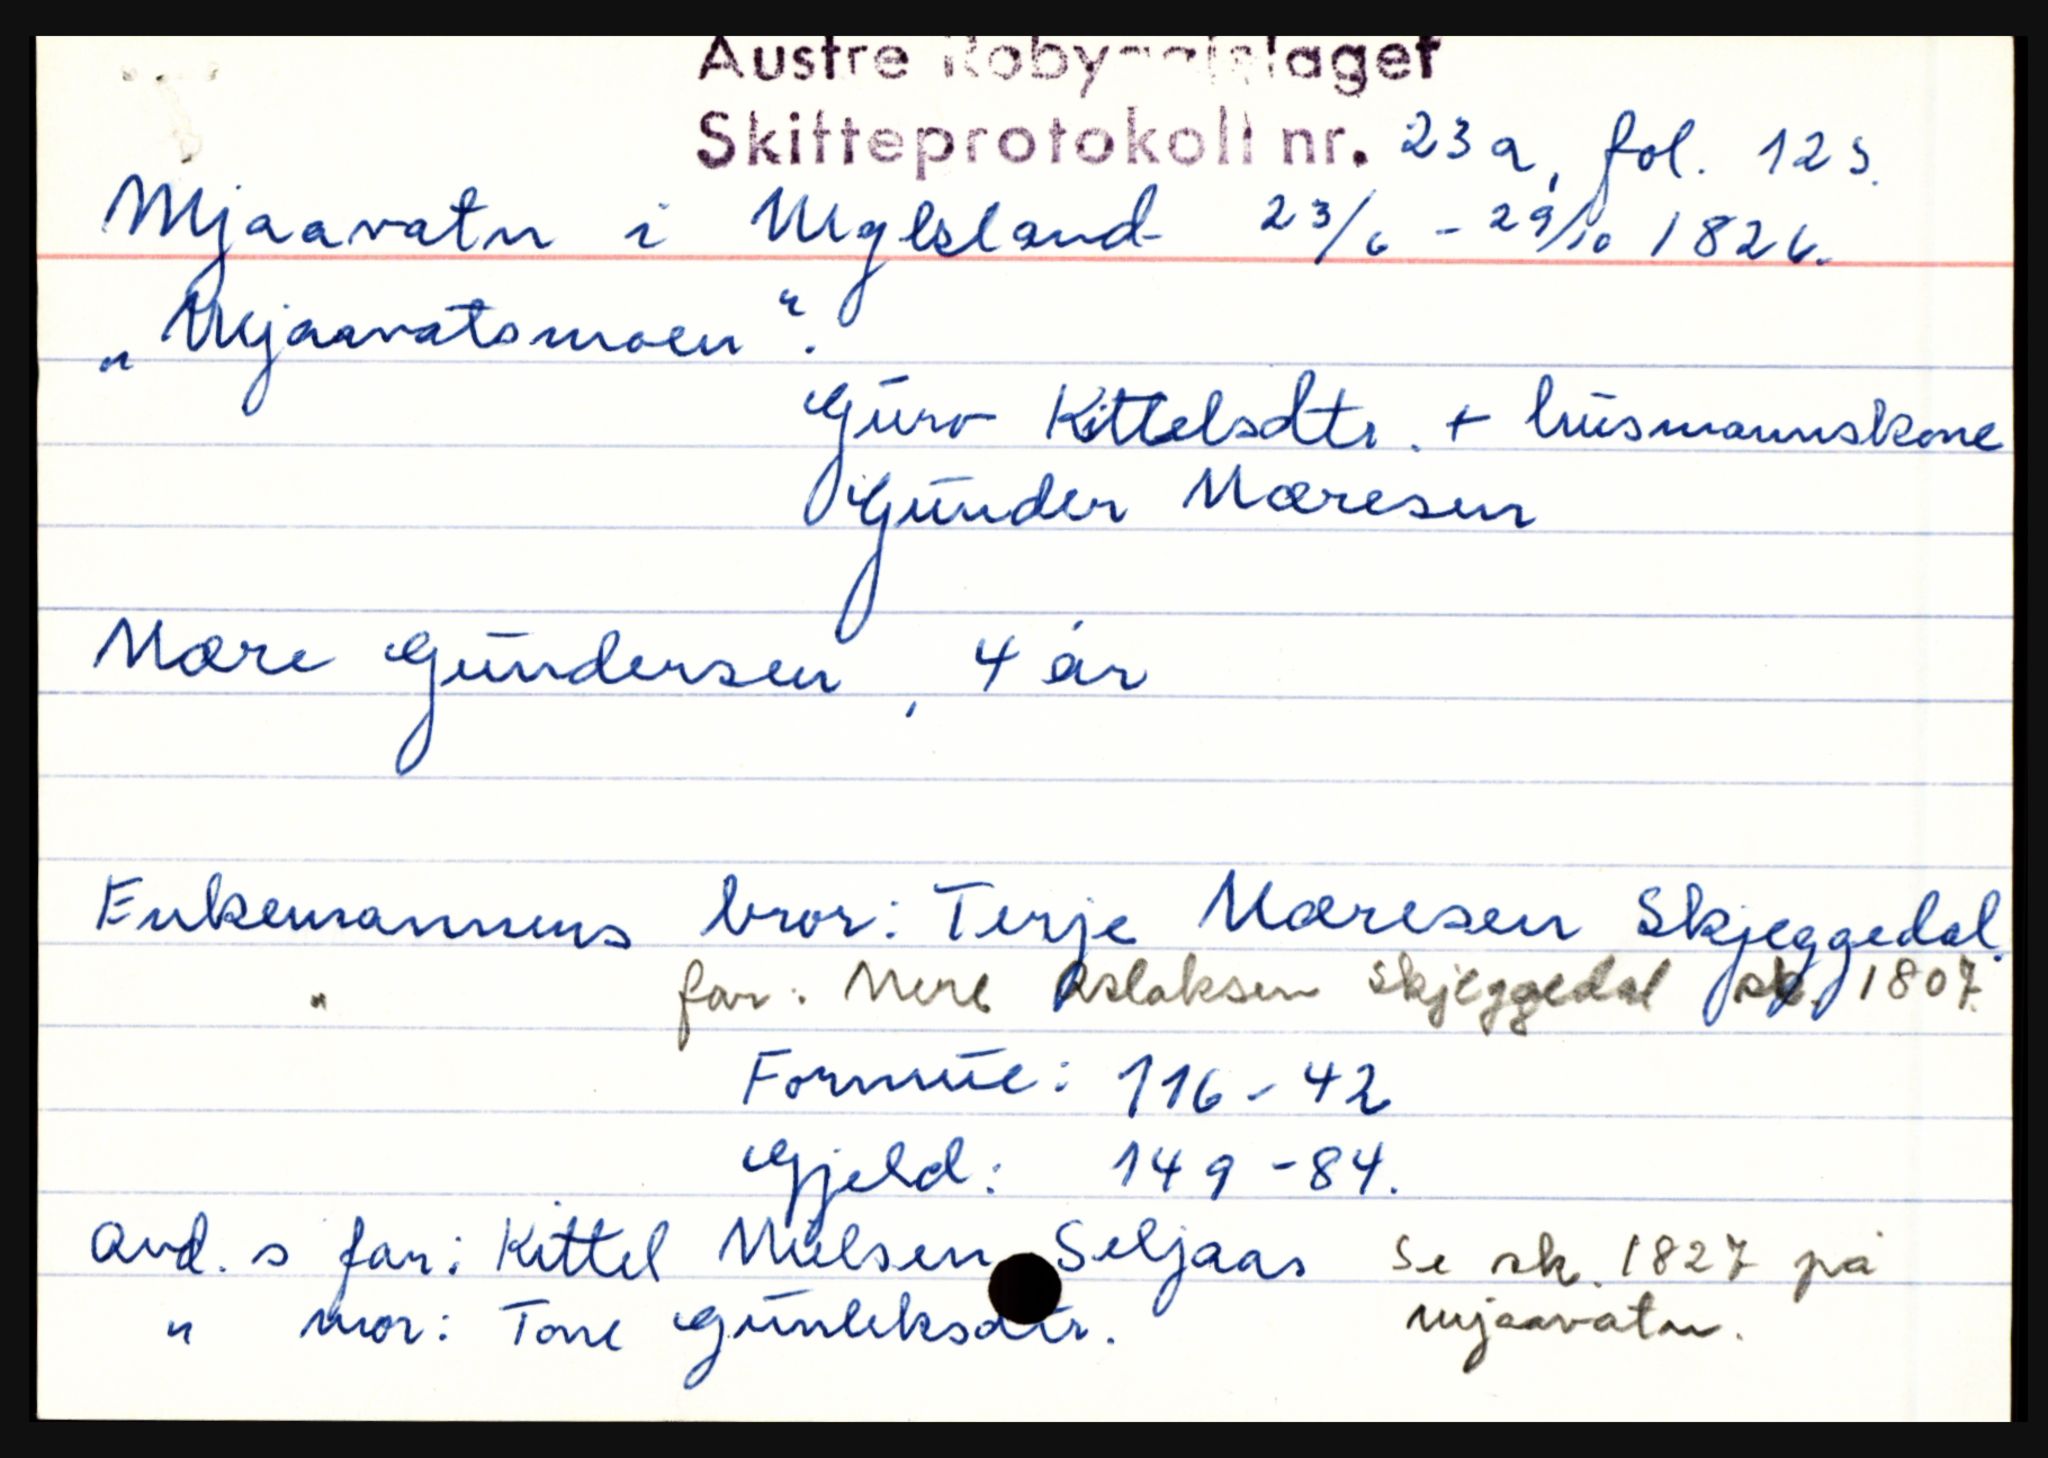 Austre Robyggjelaget
Skifteprotokoll nr. 23a, fol. 123.
Mjaavatn i Myklsland 23/6 - 29/10 1826.
"Mjaavatsmoen".
Guro Kittelsdtr. + husmannskone
Gunder Mæresen
Mære Gundersen, 4 år
Enkemannens bror: Terje Mæresen Skjeggedal.
" far: Mere Aslaksen Skjeggedal sk. 1807.
Formue: 116-42
Gjeld: 149-84.
Avd. s far: Kittel Nielsen Seljaas Se sk. 1827 på
" mor: Tone Gunleksdtr. mjaavatn.